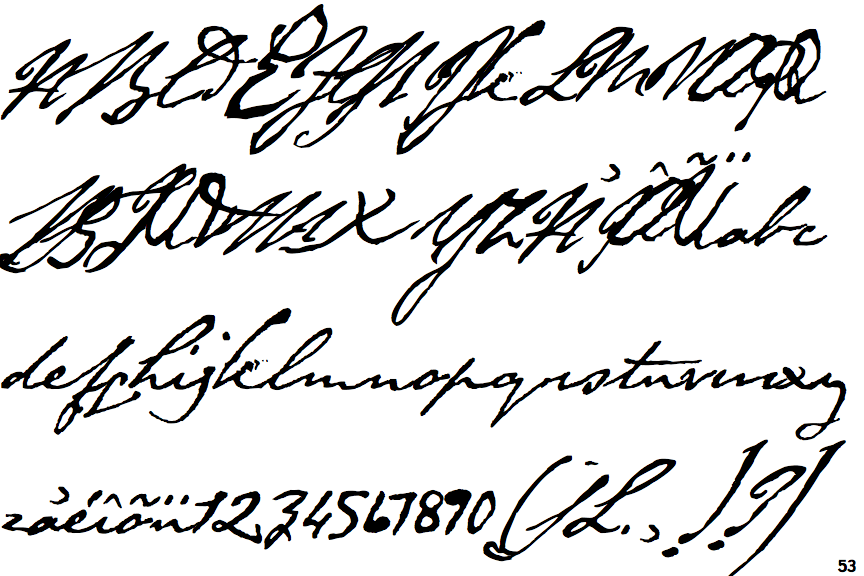 ABCDEFGHIJKLMNOPQR
STUVWXYZÀÉÎÕÜabc
defghijklmnopqrstuvwxy
zàéîõü1234567890($£.,!?)
53